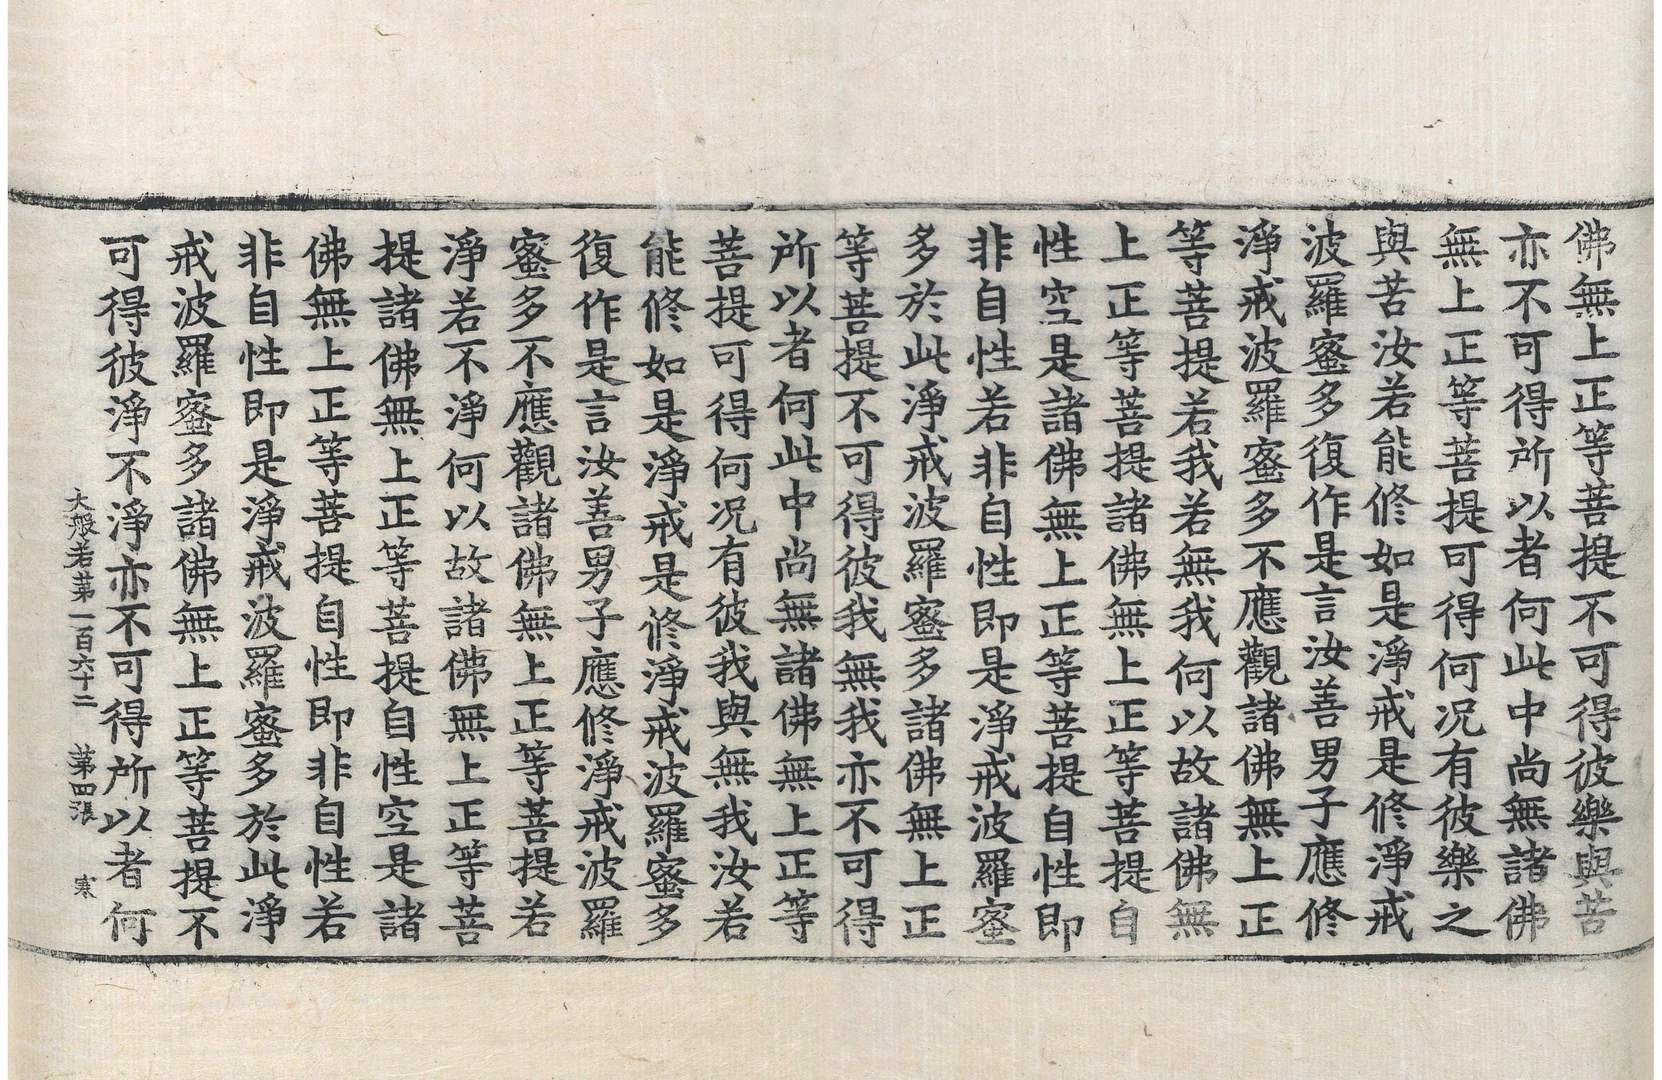 佛無上正等菩提不可得彼樂與苦
亦不可得所以者何此中尚無諸佛
無上正等菩提可得何況有彼樂之
與苦汝若能修如是淨戒是修淨戒
波羅蜜多復作是言汝善男子應修
淨戒波羅蜜多不應觀諸佛無上正
等菩提若我若無我何以故諸佛無
上正等菩提諸佛無上正等菩提自
性空是諸佛無上正等菩提自性即
非自性若非自性即是淨戒波羅蜜
多於此淨戒波羅蜜多諸佛無上正
等菩提不可得彼我無我亦不可得
所以者何此中尚無諸佛無上正等
菩提可得何況有彼我與無我汝若
能修如是淨戒是修淨戒波羅蜜多
復作是言汝善男子應修淨戒波羅
蜜多不應觀諸佛無上正等菩提若
淨若不淨何以故諸佛無上正等菩
提諸佛無上正等菩提自性空是諸
佛無上正等菩提自性即非自性若
非自性即是淨戒波羅蜜多於此淨
戒波羅蜜多諸佛無上正等菩提不
可得彼淨不淨亦不可得所以者何
大般若第一百六十二　第四張　寒